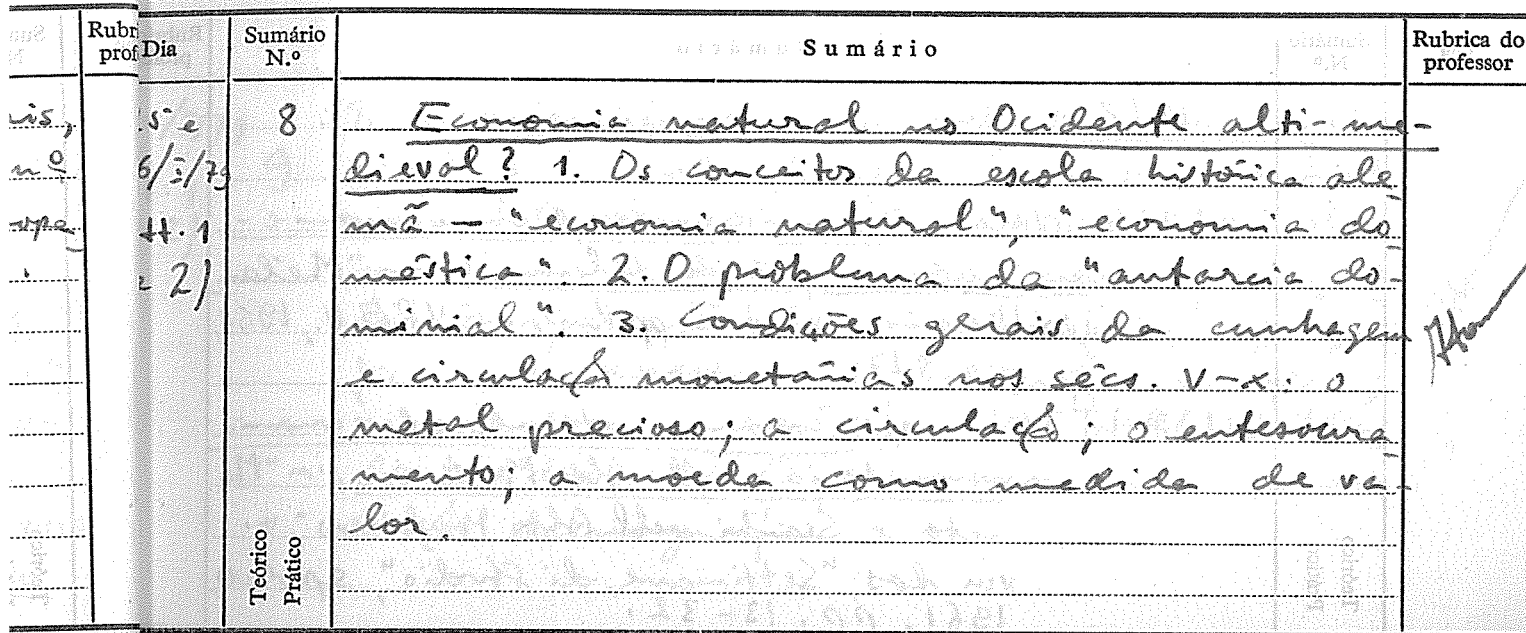 Rubr
prof
Dia
Sumário
N.º
Sumário
Rubrica do
professor
is,
nº
5 e
6/I/79
H. 1
2)
8
Economia natural no Ocidente alti-me-
dieval? 1. Os conceitos da escola histórica ale
mã — "economia natural", "economia do
méstica". 2. O problema da "autarcia do-
minial". 3. Condições gerais da cunhagem
e circulação monetárias nos sécs. V-X: o
metal precioso; a circulação; o entesoura
mento; a moeda como medida de va-
lor.
Teórico
Prático